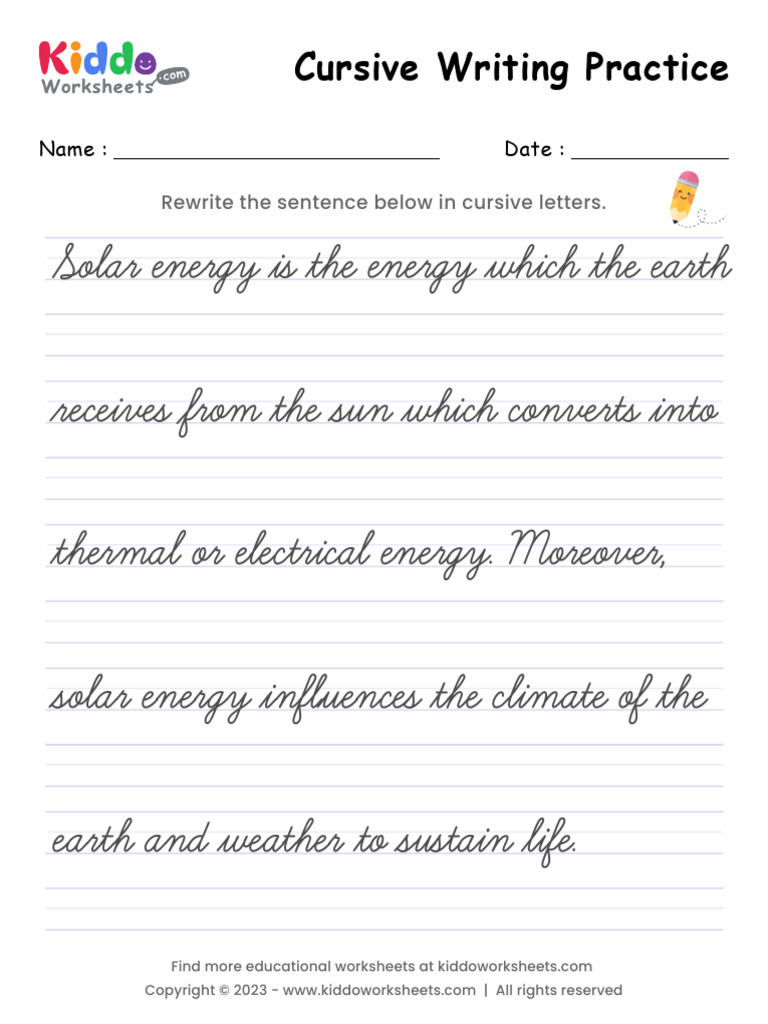 Kiddo
Worksheets.com
Cursive Writing Practice
Name : ____________________ Date : __________
Rewrite the sentence below in cursive letters.
Solar energy is the energy which the earth
receives from the sun which converts into
thermal or electrical energy. Moreover,
solar energy influences the climate of the
earth and weather to sustain life.
Find more educational worksheets at kiddoworksheets.com
Copyright © 2023 - www.kiddoworksheets.com | All rights reserved